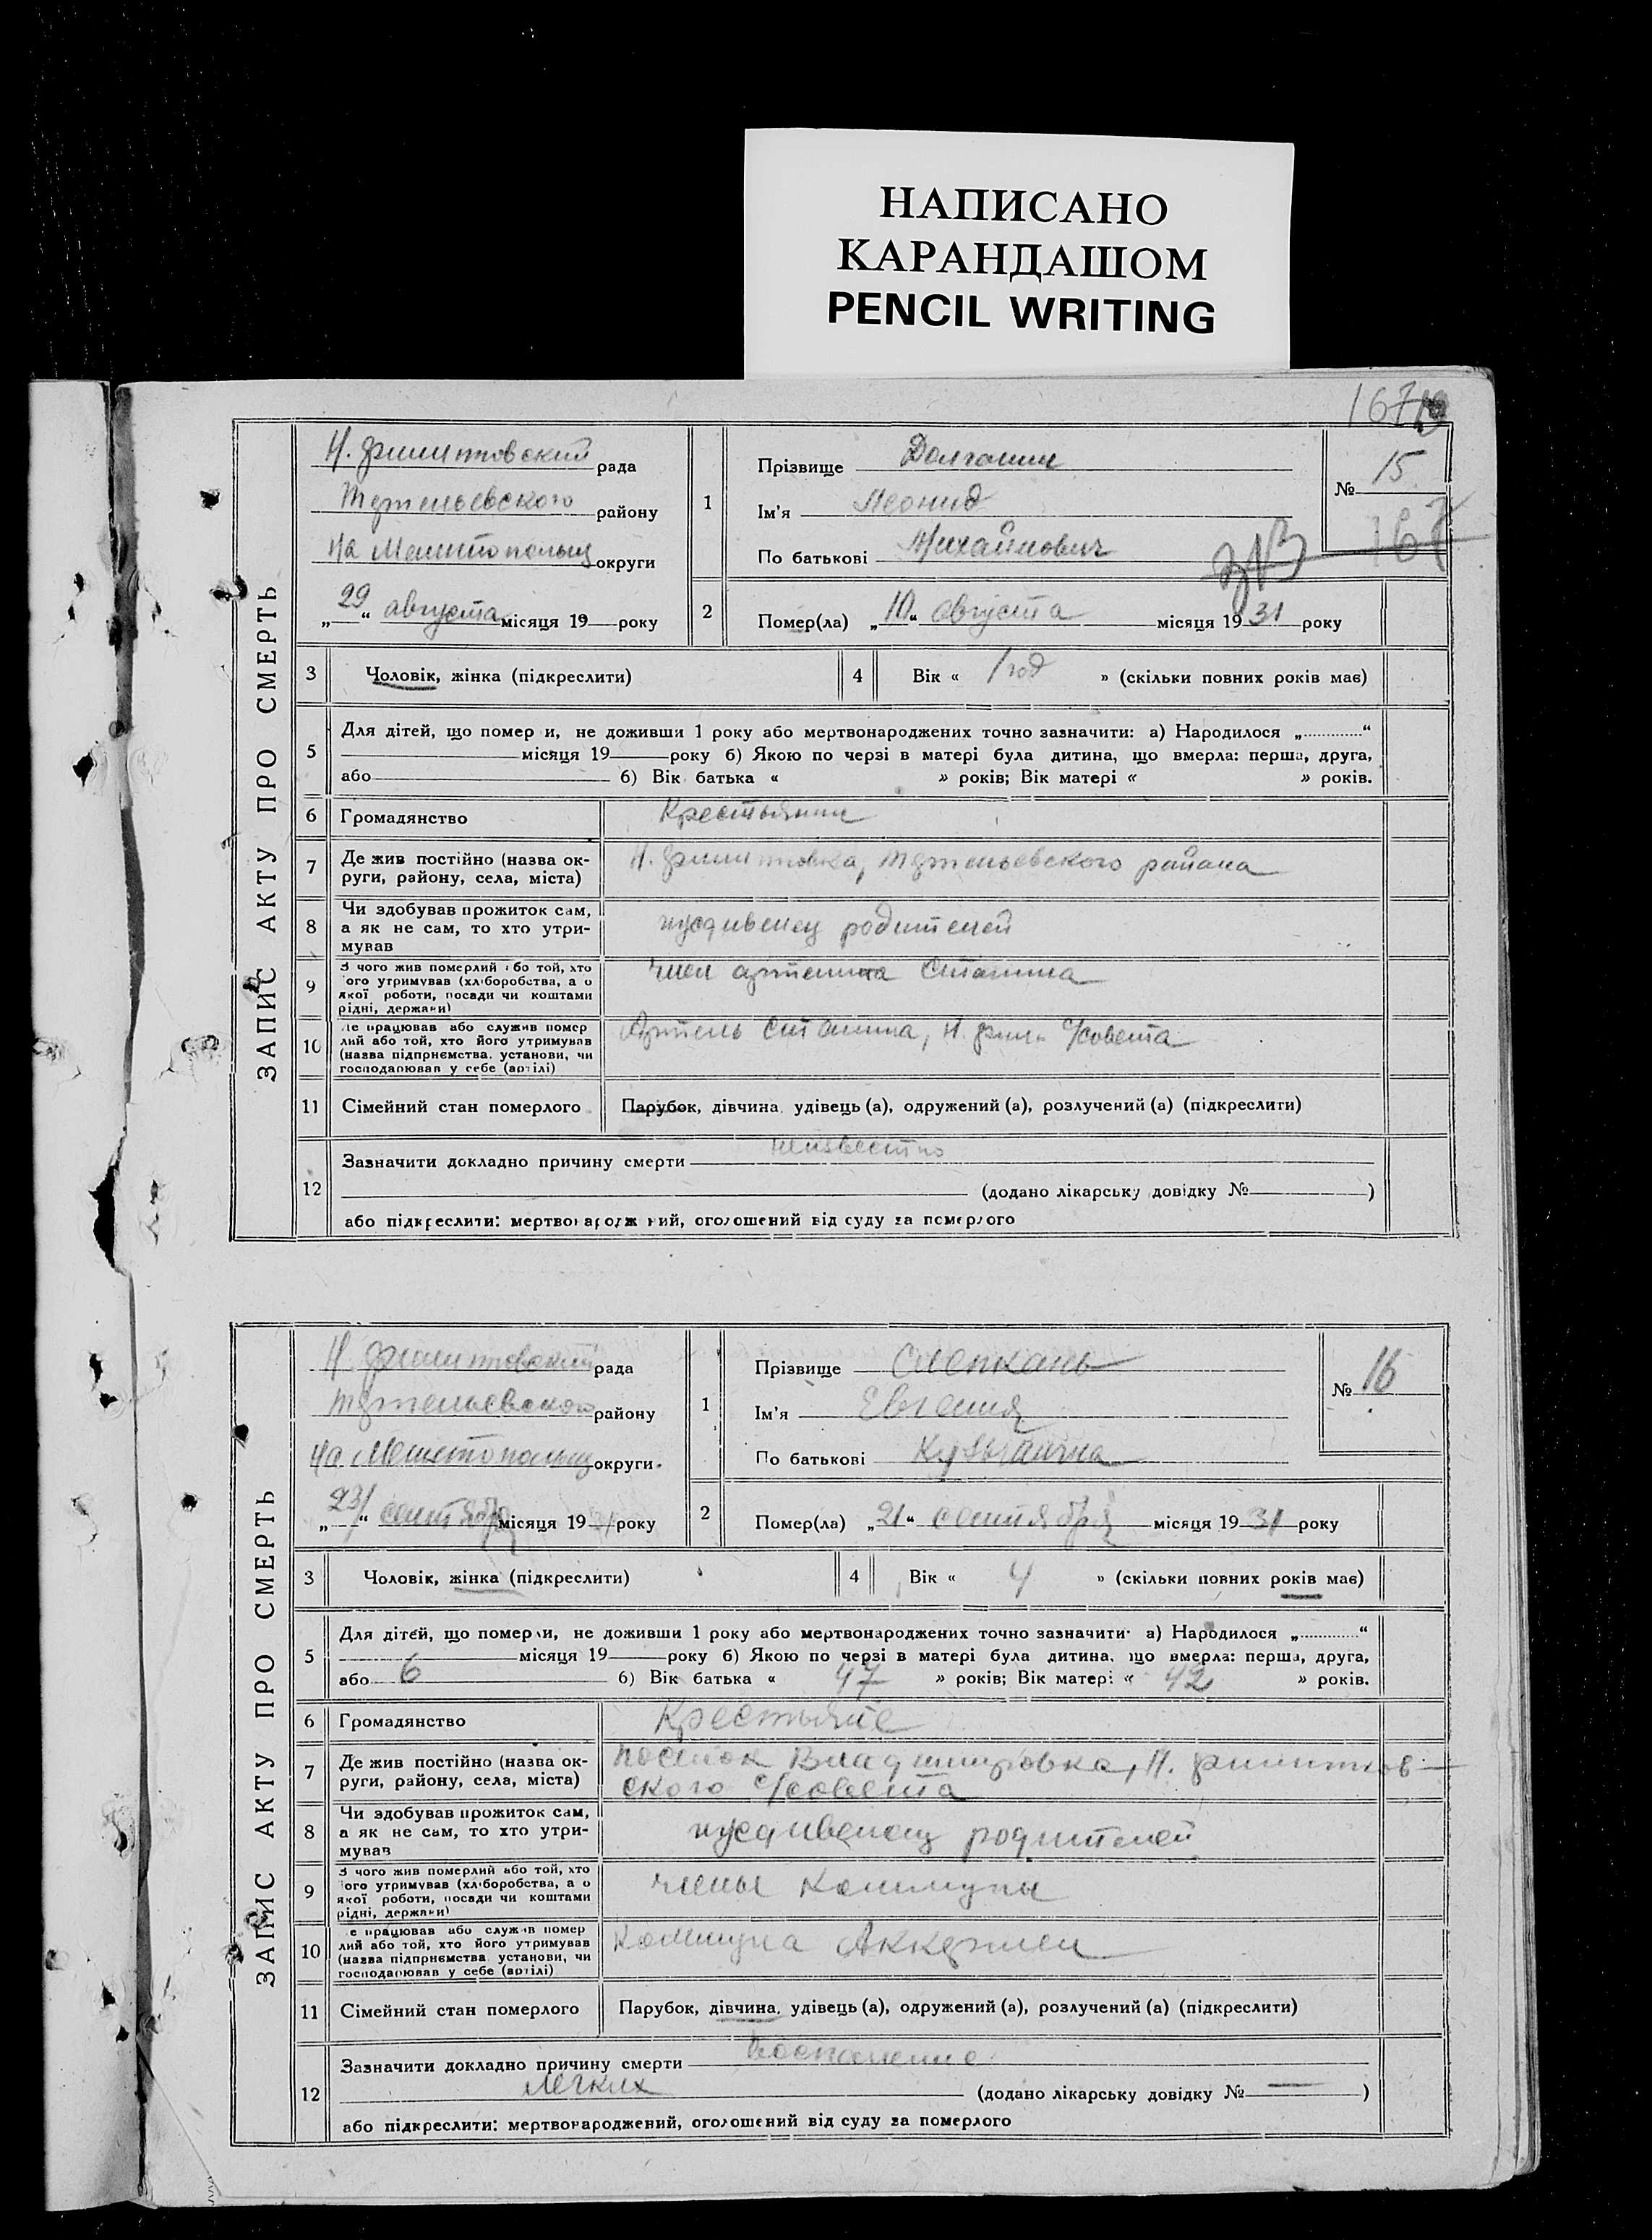 НАПИСАНО
КАРАНДАШОМ
PENCIL WRITING
167
ЗАПИС АКТУ ПРО СМЕРТЬ
рада
района
Мелитопольщ округи
„29“ августа місяця 19 року
1
Прізвище
Ім’я Леонид
По батькові Михайлович
№ 15
167
2
Помер(ла) „10“ августа місяця 1931 року
3 Чоловік, жінка (підкреслити)
4 Вік « 1 год » (скільки повних років має)
5 Для дітей, що померли, не доживши 1 року або мертвонароджених точно зазначити: а) Народилося „ “
місяця 19 року б) Якою по черзі в матері була дитина, що вмерла: перша, друга,
або б) Вік батька « » років; Вік матері « » років.
6 Громадянство Крестьянин
7 Де жив постійно (назва ок-
руги, району, села, міста)
района
8 Чи здобував прожиток сам,
а як не сам, то хто утри-
мував
иждивенец родителей
9 З чого жив померлий або той, хто
його утримував (хліборобства, а о
якої роботи, посади чи коштами
рідні, держави)
член артели Сталина
10 Де працював або служив помер
лий або той, хто його утримував
(назва підприємства, установи, чи
господарював у себе (артілі)
Артель Сталина, с/совета
11 Сімейний стан померлого Парубок, дівчина, удівець (а), одружений (а), розлучений (а) (підкреслити)
12 Зазначити докладно причину смерти неизвестно
(додано лікарську довідку № )
або підкреслити: мертвонароджений, оголошений від суду за померлого
ЗАПИС АКТУ ПРО СМЕРТЬ
рада
району
Мелитопольщ округи.
„23“ сентября місяця 1931 року
1
Прізвище Слепкань
Ім’я Евгения
По батькові Кузьминична
№ 16
2
Помер(ла) „21“ сентября місяця 1931 року
3 Чоловік, жінка (підкреслити)
4 Вік « 4 » (скільки повних років має)
5 Для дітей, що померли, не доживши 1 року або мертвонароджених точно зазначити: а) Народилося „ “
місяця 19 року б) Якою по черзі в матері була дитина, що вмерла: перша, друга,
або 6 б) Вік батька « 47 » років; Вік матері « 42 » років.
6 Громадянство Крестьяне
7 Де жив постійно (назва ок-
руги, району, села, міста)
поселок Владимировка,
ского с/совета
8 Чи здобував прожиток сам,
а як не сам, то хто утри-
мував
иждивенец родителей
9 З чого жив померлий або той, хто
його утримував (хліборобства, а о
якої роботи, посади чи коштами
рідні, держави)
члены коммуны
10 Де працював або служив помер
лий або той, хто його утримував
(назва підприємства, установи, чи
господарював у себе (артілі)
Коммуна Аккермен
11 Сімейний стан померлого Парубок, дівчина, удівець (а), одружений (а), розлучений (а) (підкреслити)
12 Зазначити докладно причину смерти воспаление
легких (додано лікарську довідку № — )
або підкреслити: мертвонароджений, оголошений від суду за померлого